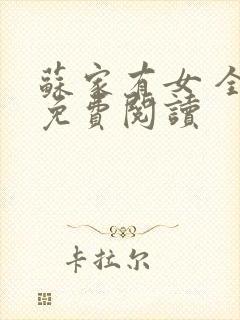 蘇家有女 全
免費閱讀
卡拉尔